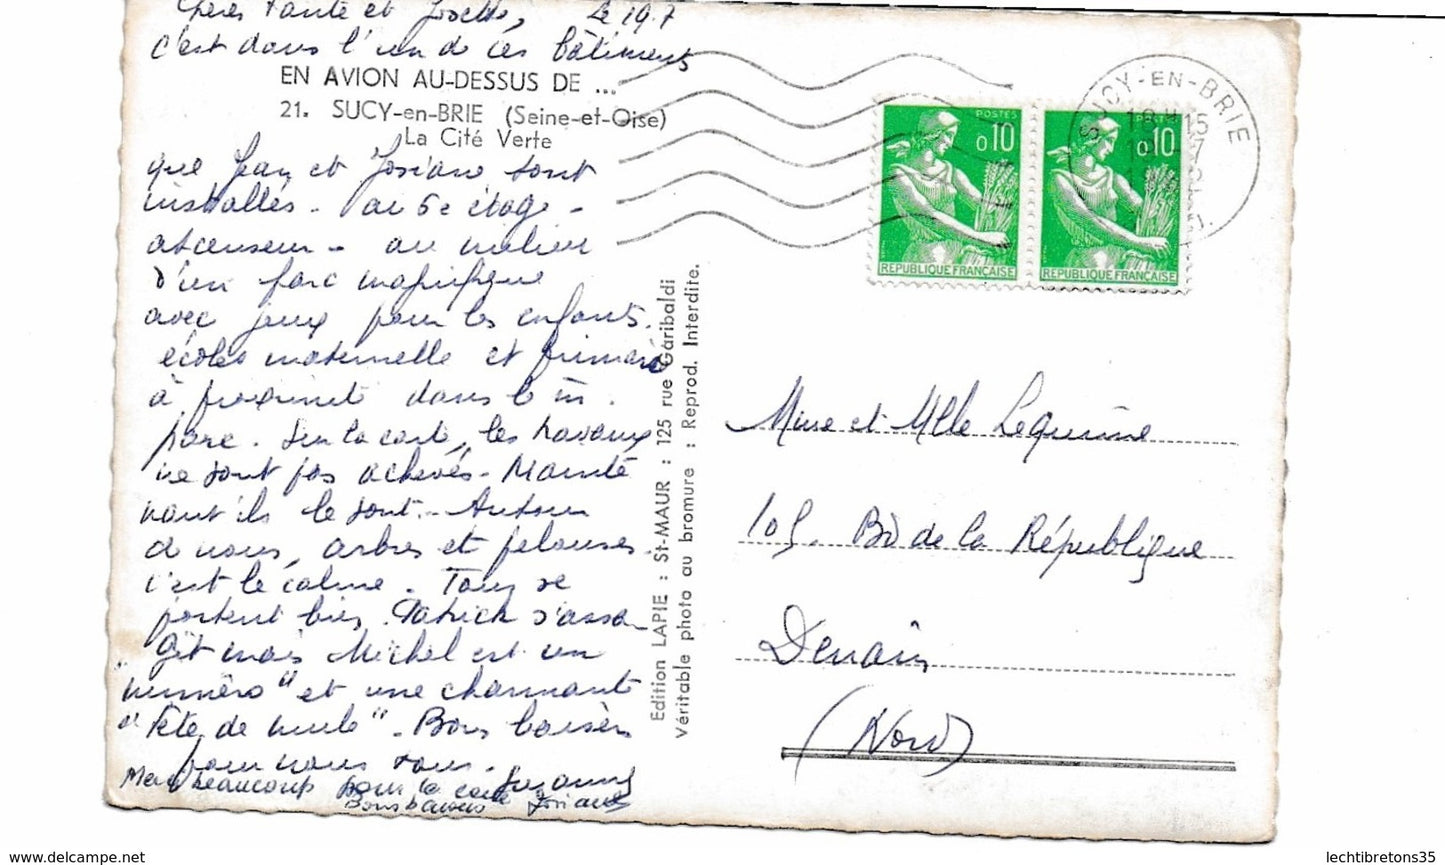 Chères Tante et Josette, Le 19.7
c'est dans l'un de ces bâtiments
EN AVION AU-DESSUS DE ...
21. SUCY-en-BRIE (Seine-et-Oise)
La Cité Verte
que Jean et Josiane sont
installés - au 6e étage -
ascenseur - au milieu
d'un parc magnifique
avec jeux pour les enfants.
écoles maternelle et primaire
à proximité dans le m.
parc. Sur la carte, les travaux
ne sont pas achevés - Mainte
nant ils le sont. - Autour
de nous, arbres et pelouses.
c'est le calme. Tous se
portent bien. Patrick s'assa-
git mais Michel est un
"numéro" et une charmante
"Tête de mule". Bons baisers
pour nous tous.
Suzanne
Merci beaucoup pour la carte
Bons baisers Josiane
Edition LAPIE : St-MAUR : 125 rue Garibaldi
Véritable photo au bromure : Reprod. Interdite.
SUCY-EN-BRIE
POSTES
0,10
REPUBLIQUE FRANÇAISE
POSTES
0,10
REPUBLIQUE FRANÇAISE
Mme et Mlle Lequime
105. Bd de la République
Denain
(Nord)
www.delcampe.net
lechtibretons35